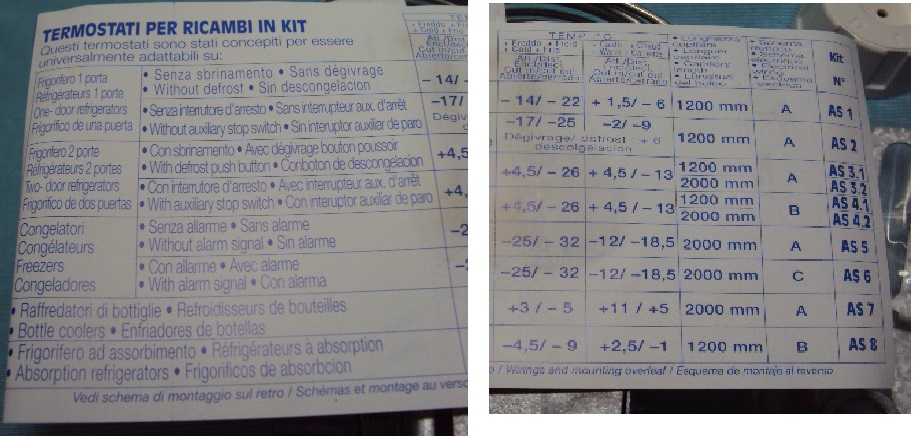 TERMOSTATI PER RICAMBI IN KIT
Questi termostati sono stati concepiti per essere
universalmente adattabili su:
Frigorifero 1 porta
Réfrigérateurs 1 porte
One- door refrigerators
Frigorifico de una puerta
• Senza sbrinamento • Sans dégivrage
• Without defrost • Sin descongelacion
• Senza interrutore d'arresto • Sans interrupteur aux. d'arrêt
• Without auxiliary stop switch • Sin interuptor auxiliar de paro
Frigorifero 2 porte
Réfrigérateurs 2 portes
Two- door refrigerators
Frigorifico de dos puertas
• Con sbrinamento • Avec dégivrage bouton poussoir
• With defrost push button • Conboton de descongelación
• Con interutore d'arresto • Avec interrupteur aux. d'arrêt
• With auxiliary stop switch • Con interuptor auxiliar de paro
Congelatori
Congélateurs
Freezers
Congeladores
• Senza allarme • Sans alarme
• Without alarm signal • Sin alarme
• Con allarme • Avec alarme
• With alarm signal • Con alarma
• Raffredatori di bottiglie • Refroidisseurs de bouteilles
• Bottle coolers • Enfriadores de botellas
• Frigorifero ad assorbimento • Réfrigérateurs à absorption
• Absorption refrigerators • Frigorificos de absorbcion
Vedi schema di montaggio sul retro / Schémas et montage au verso
– 14/ –
–17/
+4,5
+4,
–2
Kit
N°
– 14/ – 22 + 1,5/ – 6 1200 mm A AS 1
–17/ –25 –2/ –9
Dégivrage/ defrost + 6
descolgelacion
1200 mm A AS 2
+4,5/ – 26 + 4,5 / – 13 1200 mm
2000 mm A AS 3.1
AS 3.2
+4,5/ – 26 + 4,5 / – 13 1200 mm
2000 mm B AS 4.1
AS 4.2
–25/ – 32 –12/ –18,5 2000 mm A AS 5
–25/ – 32 –12/ –18,5 2000 mm C AS 6
+3 / – 5 +11 / +5 2000 mm A AS 7
–4,5/ – 9 +2,5/ –1 1200 mm B AS 8
/ Wirings and mounting overleaf / Esquema de montaje al reverso